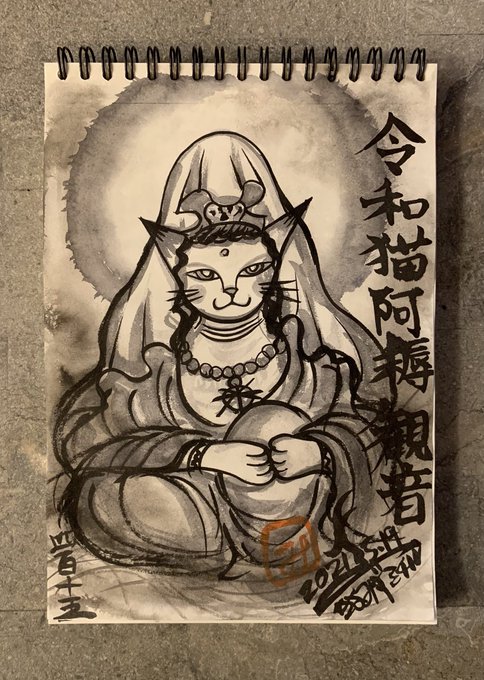 令和猫阿耨観音
四百十五
2021